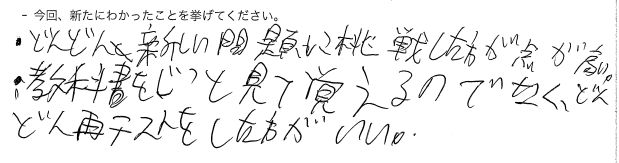 - 今回、新たにわかったことを挙げてください。
・どんどんと新しい問題に挑戦した方が点が高い。
・教科書をじっと見て覚えるのでなく、どん
どん再テストをした方がいい。